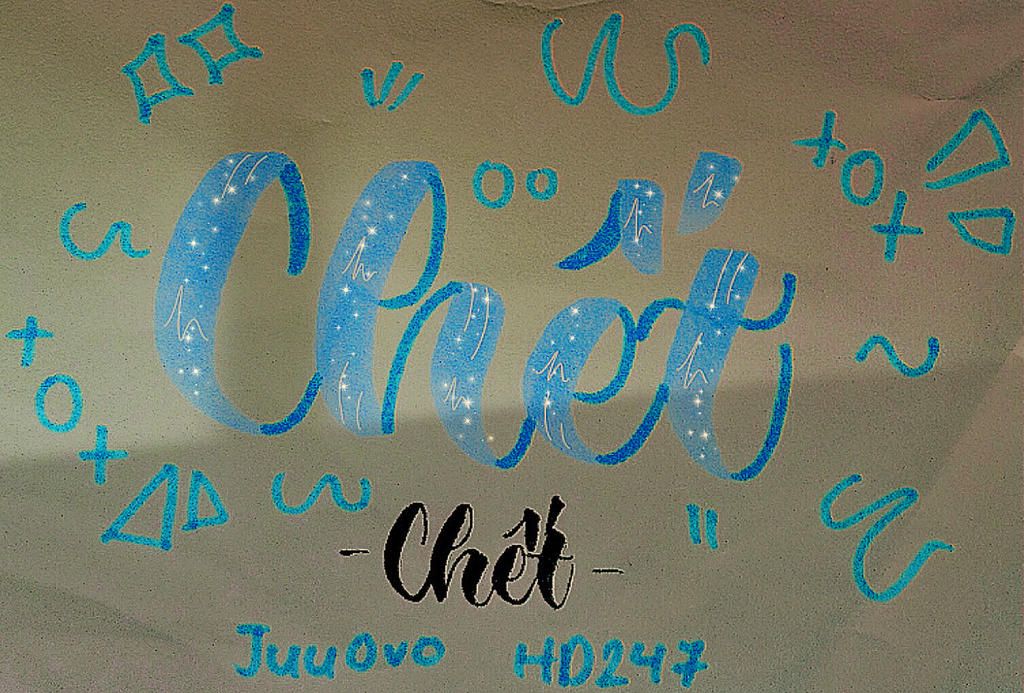 Chết
- Chết -
Juuovo HD247